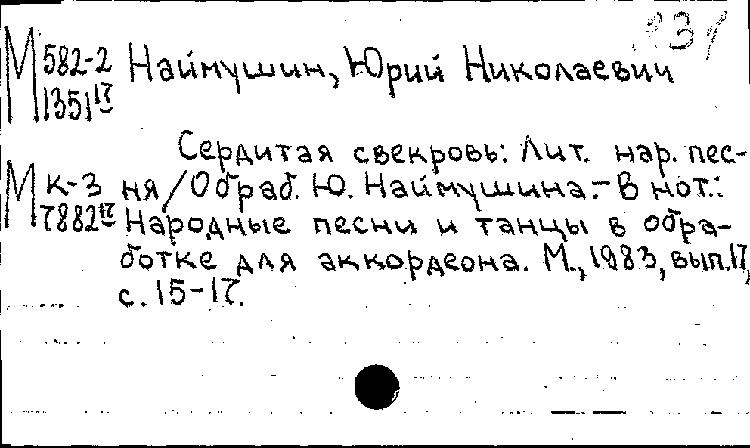 М 582-2 Наймушин, Юрий Николаевич
1351 17
Сердитая свекровь: Лит. нар. пес-
М к-3 ня/Обраб. Ю. Наймушина.- В нот.:
7882 17 Народные песни и танцы в обра-
ботке для аккордеона. М., 1983, вып. 17,
с. 15-17.